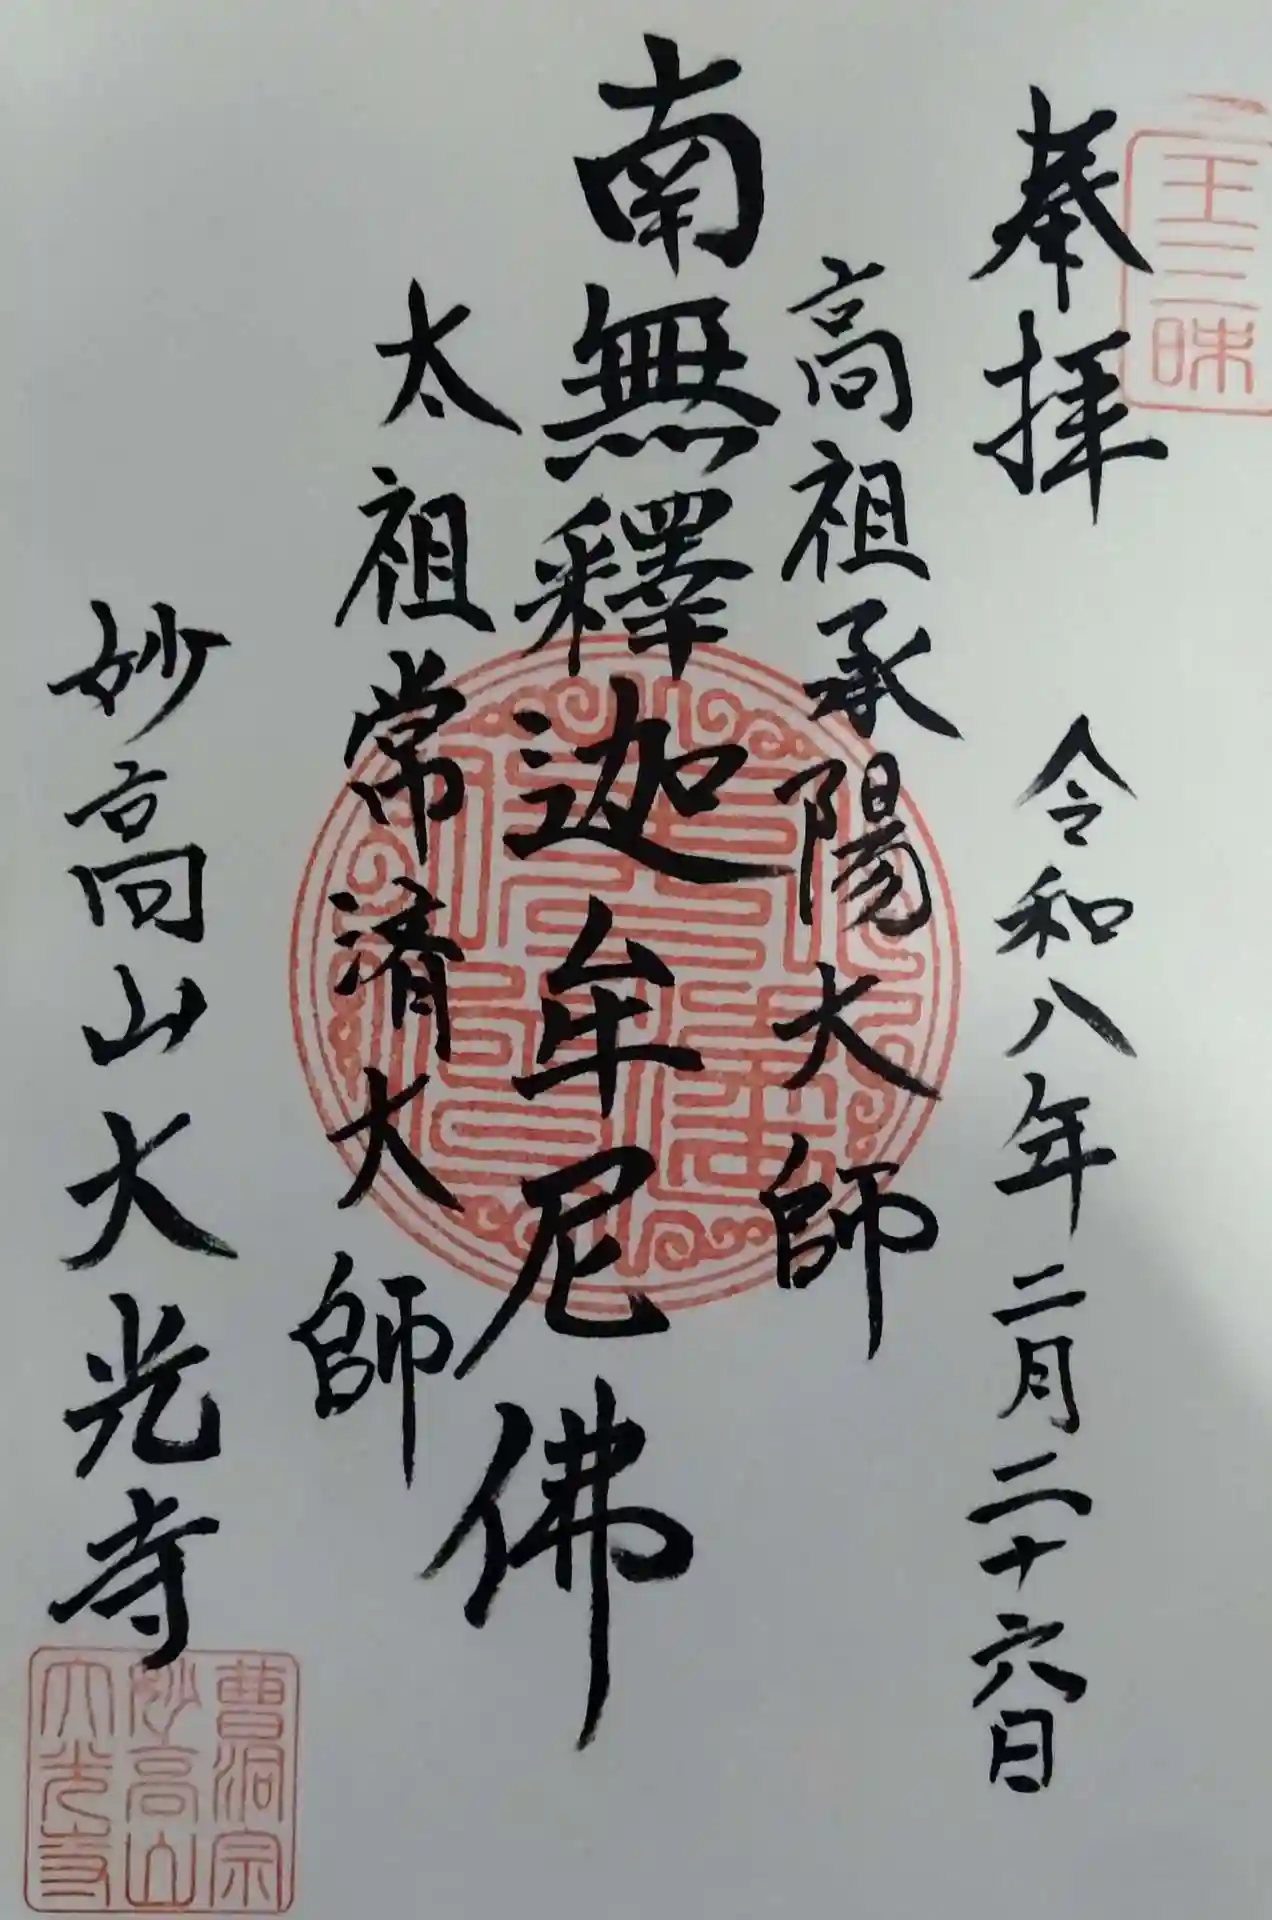 王三昧
奉拝 令和八年二月二十六日
高祖承陽大師
南無釋迦牟尼佛
太祖常済大師
妙高山大光寺
曹洞宗
妙高山
大光寺